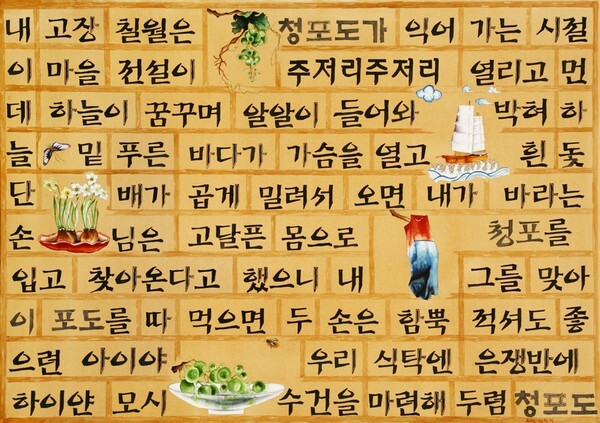 내 고장 칠월은 청포도가 익어 가는 시절
이 마을 전설이 주저리주저리 열리고 먼
데 하늘이 꿈꾸며 알알이 들어와 박혀 하
늘 밑 푸른 바다가 가슴을 열고 흰 돛
단 배가 곱게 밀려서 오면 내가 바라는
손 님은 고달픈 몸으로 청포를
입고 찾아온다고 했으니 내 그를 맞아
이 포도를 따 먹으면 두 손은 함뿍 적셔도 좋
으련 아이야 우리 식탁엔 은쟁반에
하이얀 모시 수건을 마련해 두렴 청포도